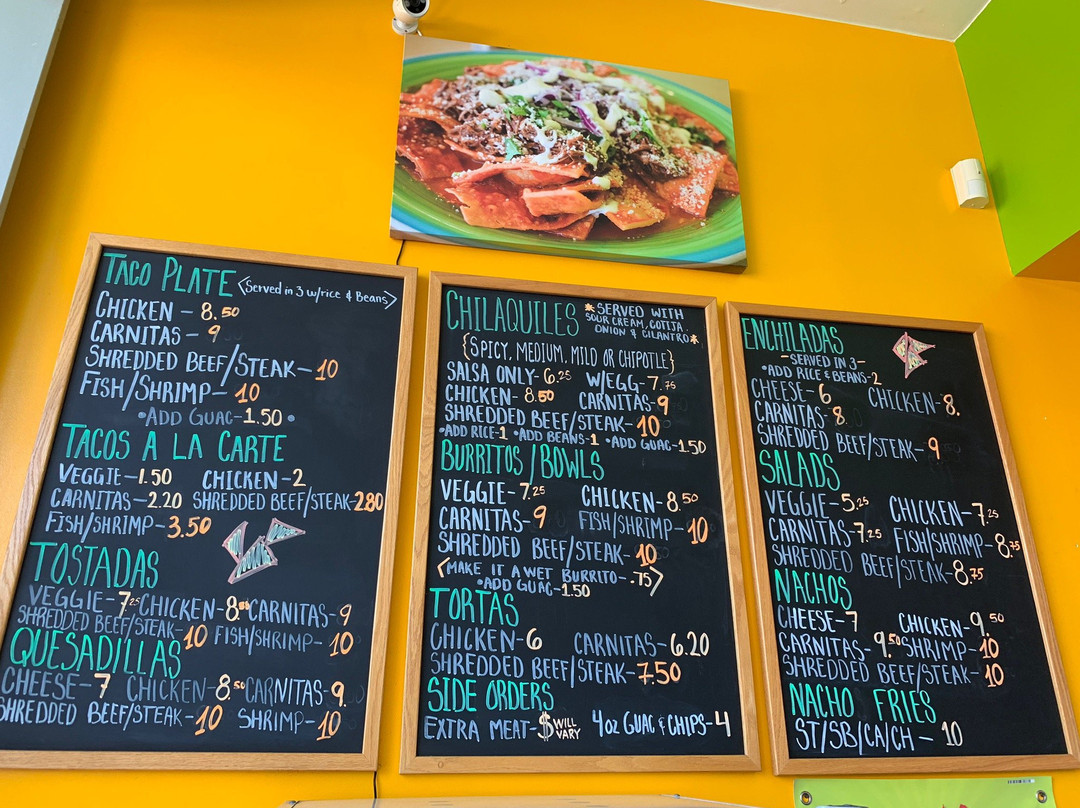 TACO PLATE <Served in 3 w/rice & Beans>
CHICKEN - 8.50
CARNITAS - 9
SHREDDED BEEF/STEAK - 10
FISH/SHRIMP - 10
•ADD GUAC-1.50•
TACOS A LA CARTE
VEGGIE-1.50 CHICKEN-2
CARNITAS-2.20 SHREDDED BEEF/STEAK-2.80
FISH/SHRIMP-3.50
TOSTADAS
VEGGIE-7.25 CHICKEN-8.50 CARNITAS-9
SHREDDED BEEF/STEAK-10 FISH/SHRIMP-10
QUESADILLAS
CHEESE-7 CHICKEN-8.50 CARNITAS-9.
SHREDDED BEEF/STEAK-10 SHRIMP-10
CHILAQUILES *SERVED WITH
SOUR CREAM, COTIJA,
ONION & CILANTRO*
{SPICY, MEDIUM, MILD OR CHIPOTLE}
SALSA ONLY-6.25 W/EGG-7.75
CHICKEN-8.50 CARNITAS-9
SHREDDED BEEF/STEAK-10
•ADD RICE-1 •ADD BEANS-1 •ADD GUAC-1.50
BURRITOS/BOWLS
VEGGIE-7.25 CHICKEN-8.50
CARNITAS-9 FISH/SHRIMP-10
SHREDDED BEEF/STEAK-10
<MAKE IT A WET BURRITO-.75>
•ADD GUAC-1.50
TORTAS
CHICKEN-6 CARNITAS-6.20
SHREDDED BEEF/STEAK-7.50
SIDE ORDERS
EXTRA MEAT-$ WILL VARY 4oz GUAC & CHIPS-4
ENCHILADAS
-SERVED IN 3-
•ADD RICE & BEANS-2
CHEESE-6 CHICKEN-8.
CARNITAS-8.
SHREDDED BEEF/STEAK-9
SALADS
VEGGIE-5.25 CHICKEN-7.25
CARNITAS-7.25 FISH/SHRIMP-8.75
SHREDDED BEEF/STEAK-8.75
NACHOS
CHEESE-7 CHICKEN-9.50
CARNITAS-9.50 SHRIMP-10
SHREDDED BEEF/STEAK-10
NACHO FRIES
ST/SB/CA/CH-10